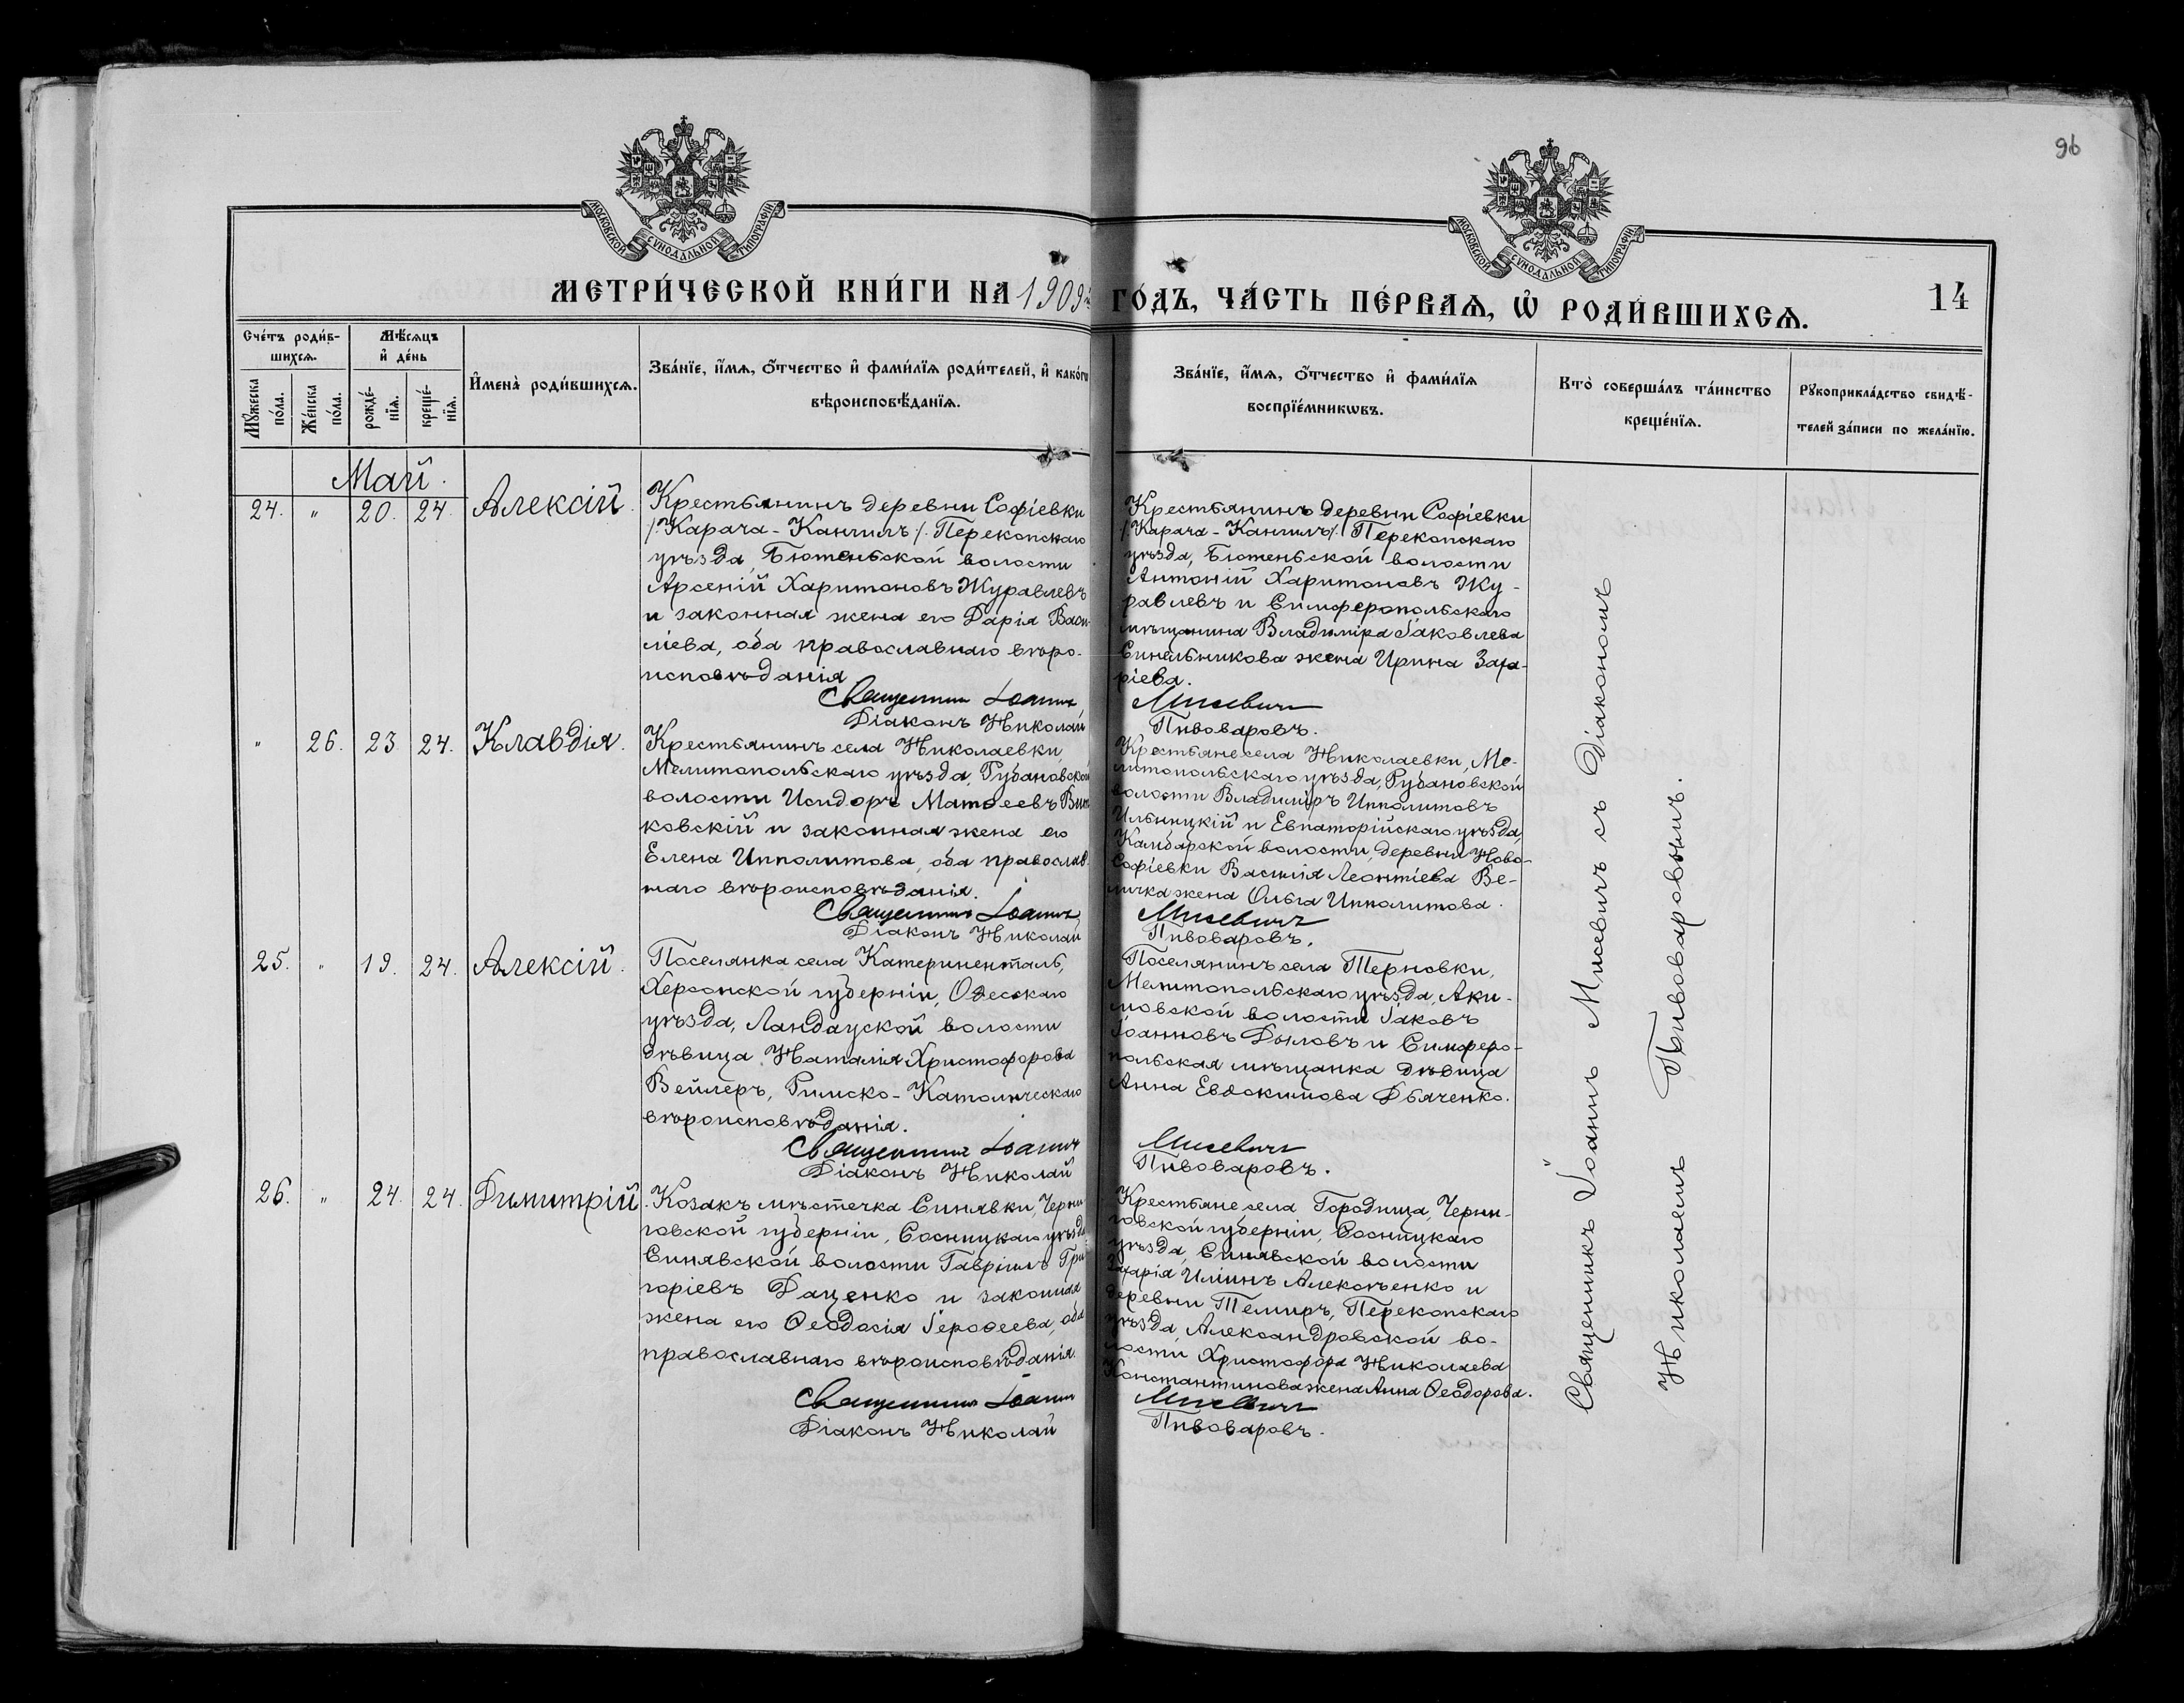 96
МОСКОВСКОЙ СѴНОДАЛЬНОЙ ТИПОГРАФІИ
МОСКОВСКОЙ СѴНОДАЛЬНОЙ ТИПОГРАФІИ
МЕТРИ́ЧЕСКОЙ КНИ́ГИ НА 1909й ГО́ДЪ, ЧА́СТЬ ПЕ́РВАѦ, Ѡ҆ РОДИ́ВШИХСѦ.
14
Сче́тъ роди́в-
шихсѧ.
Мꙋ́жеска по́ла.
Же́нска по́ла.
Мѣ́сѧцъ
и҆ де́нь
рожде́-нїѧ.
креще́-нїѧ.
И҆мена̀ роди́вшихсѧ.
Зва́нїе, и҆́мѧ, ѻ҆́тчество и҆ фами́лїѧ роди́телей, и҆ како́гѡ
вѣроисповѣ́данїѧ.
Зва́нїе, и҆́мѧ, ѻ҆́тчество и҆ фами́лїѧ
воспрїе́мникѡвъ.
Кто̀ соверша́лъ та́инство
креще́нїѧ.
Рꙋкоприкла́дство свидѣ́-
телей за́писи по жела́нїю.
Май.
24. " 20. 24. Алексій.
Крестьянинъ деревни Софіевки
/:Карача-Кангилъ:/ Перекопскаго
уѣзда, Бютеньской волости
Арсеній Харитоновъ Журавлевъ
и законная жена его Дарія Васи-
ліева, оба православнаго вѣро-
исповѣданія
Священникъ Іоаннъ
Діаконъ Николай
Крестьянинъ деревни Софіевки
/:Карача-Кангилъ:/ Перекопскаго
уѣзда, Бютеньской волости
Антоній Харитоновъ Жу-
равлевъ и Симферопольскаго
мѣщанина Владиміра Іаковлева
Синельникова жена Ирина Заха-
ріева.
Мисевичъ
Пивоваровъ.
" 26. 23 24. Клавдія.
Крестьянинъ села Николаевки,
Мелитопольскаго уѣзда, Рубановской
волости Исидоръ Матѳеевъ
ковскій и законная жена его
Елена Ипполитова, оба православ
наго вѣроисповѣданія.
Священникъ Іоаннъ
Діаконъ Николай
Крестьяне села Николаевки, Ме-
литопольскаго уѣзда, Рубановской
волости Владиміръ Ипполитовъ
Ильницкій и Евпаторійскаго уѣзда,
Камбарской волости, деревни Ново-
Софіевки Василія Леонтіева Ве-
личка жена Ольга Ипполитова.
Мисевичъ
Пивоваровъ.
25. " 19. 24. Алексій.
Поселянка села Катериненталь,
Херсонской губерніи, Одесскаго
уѣзда, Ландауской волости
дѣвица Наталія Христофорова
Вейлеръ, Римско-Католическаго
вѣроисповѣданія.
Священникъ Іоаннъ
Діаконъ Николай
Поселянинъ села Терновки,
Мелитопольскаго уѣзда, Аки-
мовской волости Іаковъ
Іоанновъ Дыловъ и Симферо-
польская мѣщанка дѣвица
Анна Евдокимова Дьяченко.
Мисевичъ
Пивоваровъ.
26. " 24. 24. Димитрій.
Козакъ мѣстечка Синявки, Черни
говской губерніи, Сосницкаго уѣзда
Синявской волости Гавріилъ Гри
горіевъ Даценко и законная
жена его Ѳеодосія Іероѳеева, оба
православнаго вѣроисповѣданія.
Священникъ Іоаннъ
Діаконъ Николай
Крестьяне села Городища, Черни-
говской губерніи, Сосницкаго
уѣзда, Синявской волости
Захарія Иліинъ Алексѣенко и
деревни Темиръ, Перекопскаго
уѣзда, Александровской во-
лости Христофора Николаева
Константинова жена Анна Ѳеодорова.
Мисевичъ
Пивоваровъ.
Священникъ Іоаннъ Мисевичъ съ Діакономъ
Николаемъ Пивоваровымъ.